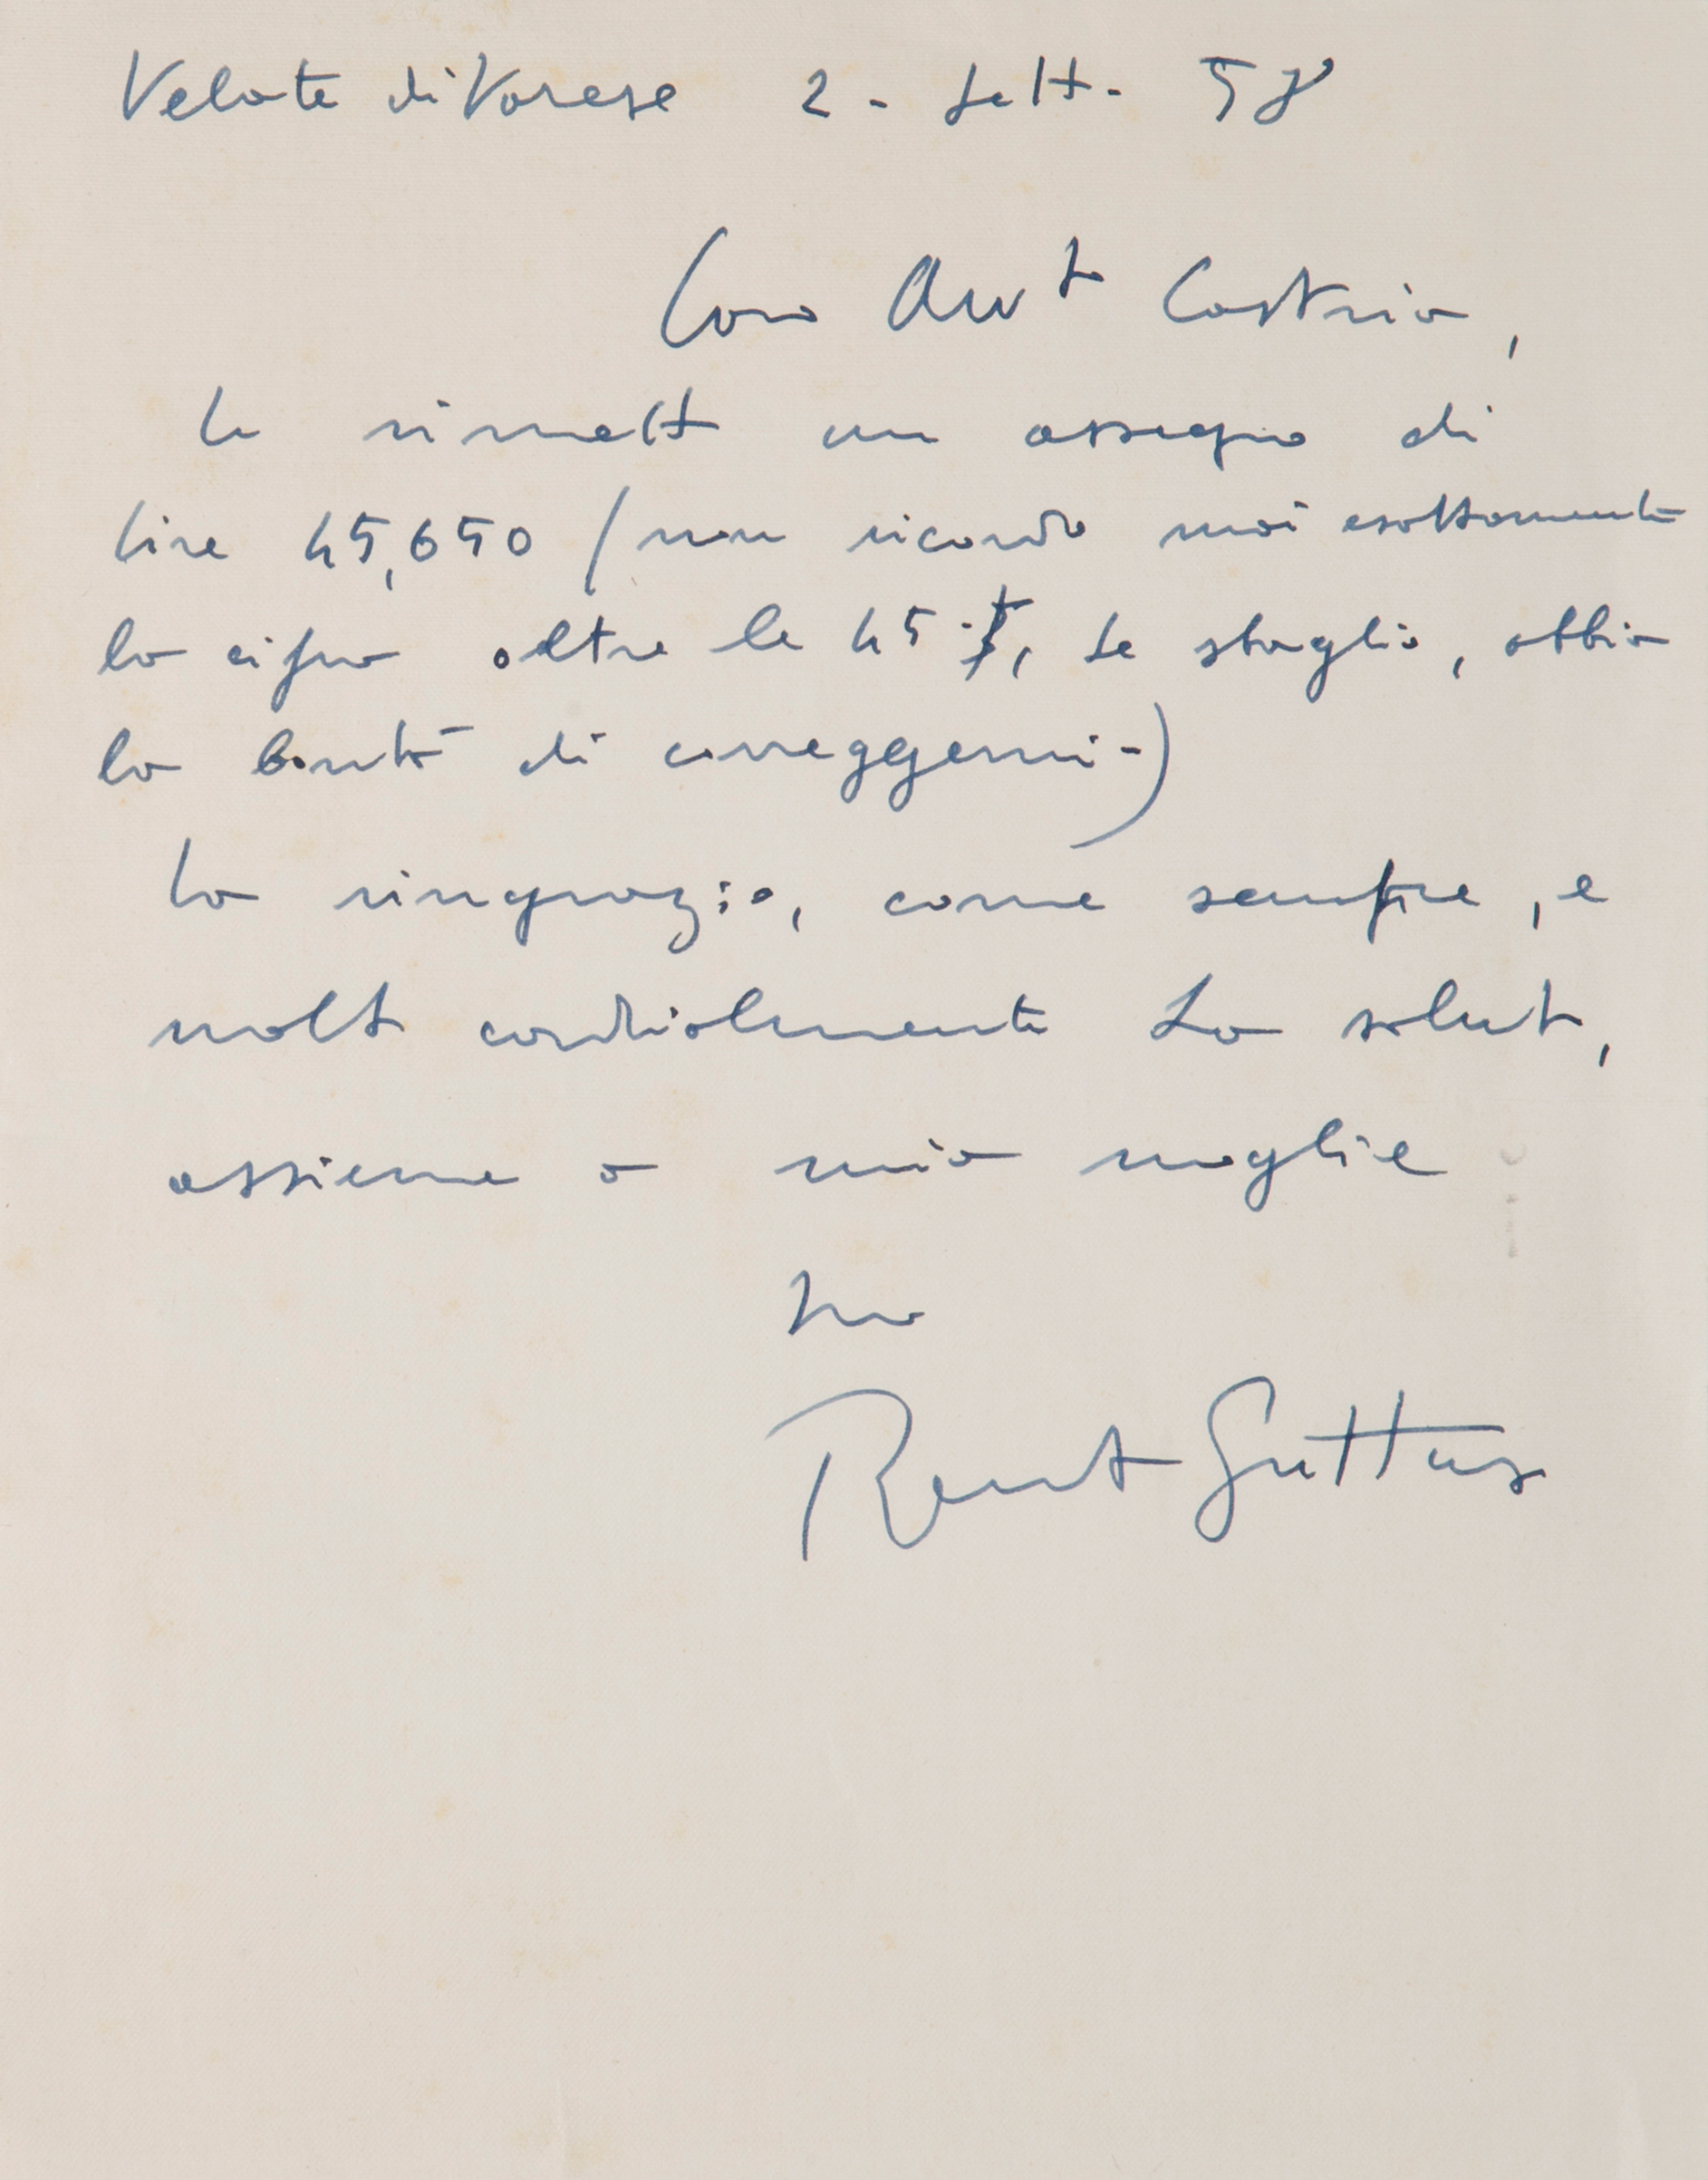 Velate di Varese 2 - Sett - 58
Caro Avv.to Castria,
Le rimetto un assegno di
lire 45,650 (non ricordo mai esattamente
la cifra oltre le 45, se sbaglio, abbia
la bontà di correggermi -)
La ringrazio, come sempre, e
molto cordialmente La saluto,
assieme a mia moglie
Suo
Renato Guttuso